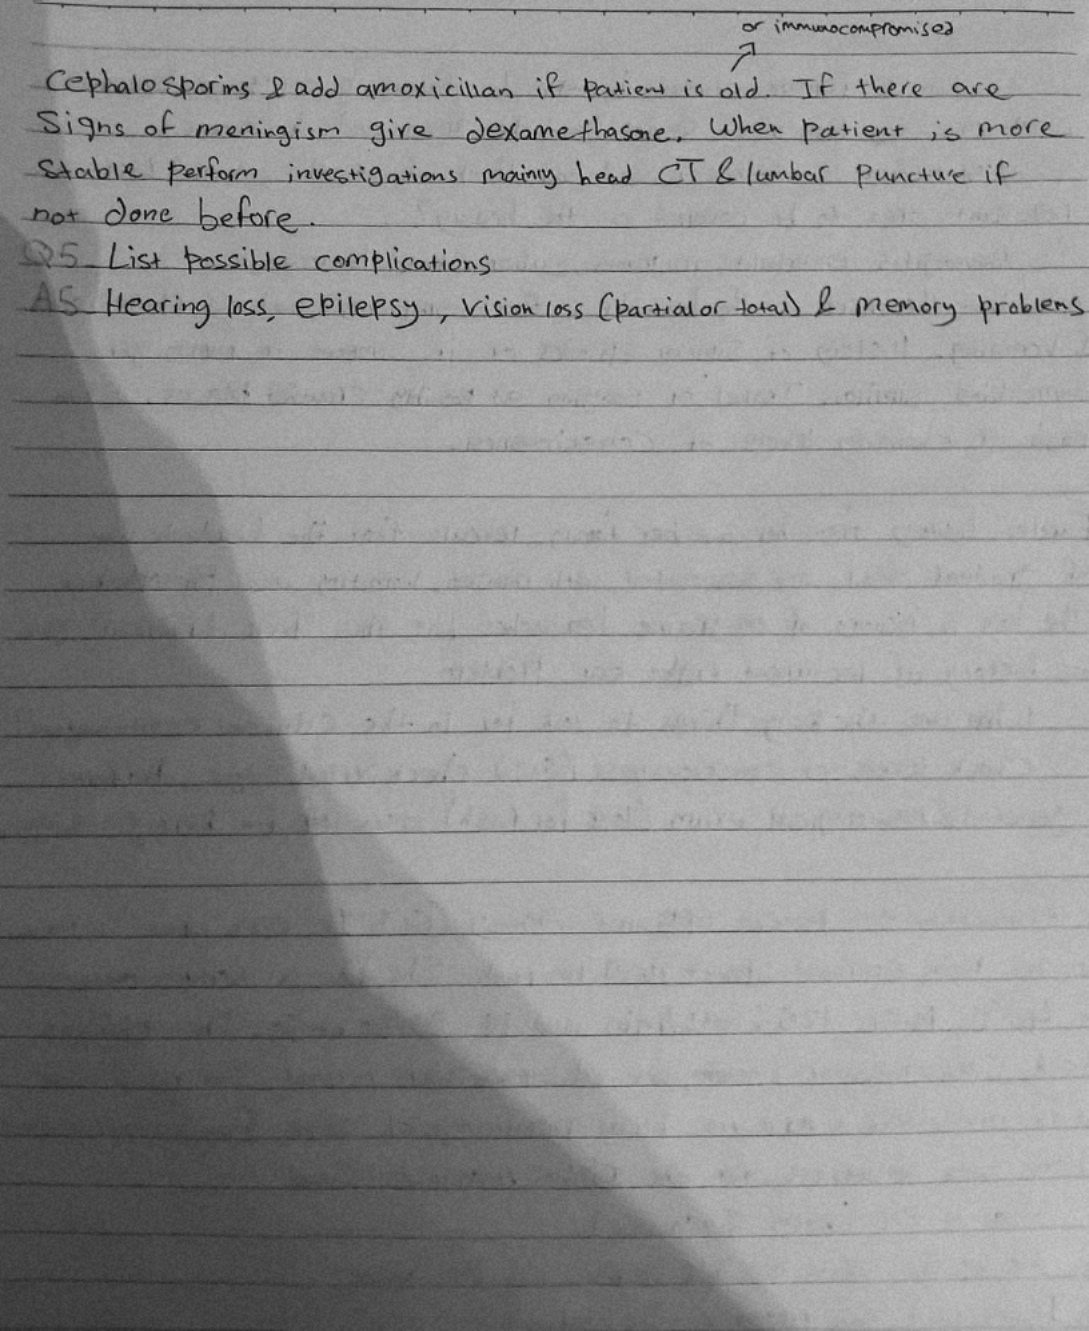 or immunocompromised
Cephalosporins & add amoxicillan if patient is old. If there are
Signs of meningism give dexamethasone. When patient is more
Stable perform investigations mainly head CT & lumbar puncture if
not done before.
Q5 List possible complications
A5 Hearing loss, epilepsy, vision loss (partial or total) & memory problems